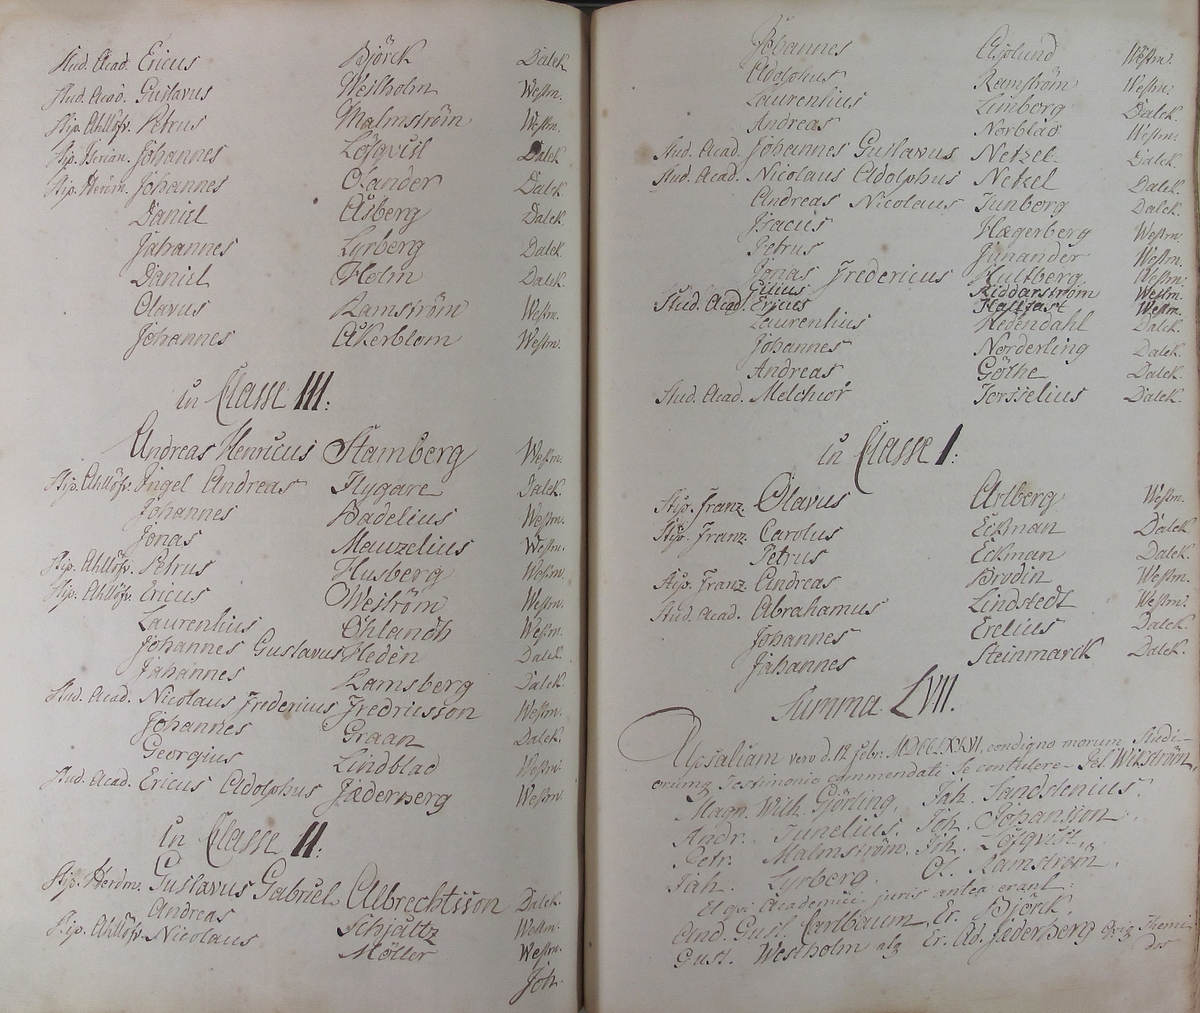 Stud. Acad. Ericus Björck Dalek.
Stud. Acad. Gustavus Westholm Westm.
Stip. Ahllöfv. Petrus Malmström Westm.
Stip. Johannes Löfqvist Dalek.
Stip. Herdm. Johannes Olander Dalek.
Daniel Åsberg Dalek.
Johannes Lyrberg Dalek.
Daniel Holm Dalek.
Olavus Ramström Westm.
Johannes Åkerblom Westm.
in Classe III:
Andreas Henricus Stamberg Westm.
Stip. Ahllöfv. Ingel Andreas Flygare Dalek.
Johannes Badelius Westm.
Jonas Mauzelius Westm.
Stip. Ahllöfv. Petrus Husberg Westm.
Stip. Ahllöfv. Ericus Weström Westm.
Laurentius Öhlandh Westm.
Johannes Gustavus Hedén Dalek.
Johannes Ramsberg Dalek.
Stud. Acad. Nicolaus Fredericus Fredricsson Westm.
Johannes Graan Dalek.
Georgius Lindblad Westm.
Stud. Acad. Ericus Adolphus Jæderberg Westm.
in Classe II:
Stip. Herdm. Gustavus Gabriel Albrechtsson Dalek.
Andreas Schjältz Westm.
Stip. Ahllöfv. Nicolaus Möller Westm.
Joh.
Johannes Asplund Westm.
Adolphus Ramström Westm.
Laurentius Limberg Dalek.
Andreas Norblad Westm.
Stud. Acad. Johannes Gustavus Netzel Dalek.
Stud. Acad. Nicolaus Adolphus Netzel Dalek.
Andreas Nicolaus Tunborg Dalek.
Isacus Hægerberg Westm.
Petrus Junander Westm.
Jonas Fredericus Hultberg Westm.
Gilius Riddarström Westm.
Stud. Acad. Ericus Hallfast Westm.
Laurentius Hedendahl Dalek.
Johannes Norderling Dalek.
Andreas Göthe Dalek.
Stud. Acad. Melchior Torsselius Dalek.
in Classe I:
Stip. Franz. Olavus Arlberg Westm.
Stip. Franz. Carolus Eckman Dalek.
Petrus Eckman Dalek.
Stip. Franz. Andreas Brodin Westm.
Stud. Acad. Abrahamus Lindstedt Westm.
Johannes Erelius Dalek.
Johannes Steinmarck Dalek.
Summa LVII.
Upsaliam vero d. 12 Febr. MDCCLXXVI, condigno morum Studi-
orumq Testimonio commendati, se contulere Pet. Wikström,
Magn. Wilh. Gjörling, Joh. Sandstenius,
Andr. Junelius, Joh. Johansson,
Petr. Malmström, Joh. Löfqvist,
Joh. Lyrberg, Ol. Ramström,
Et qvi Academici juris antea erant:
And. Gust. Carlbaum, Er. Björk,
Gust. Westholm atq Er. Ad. Jæderberg